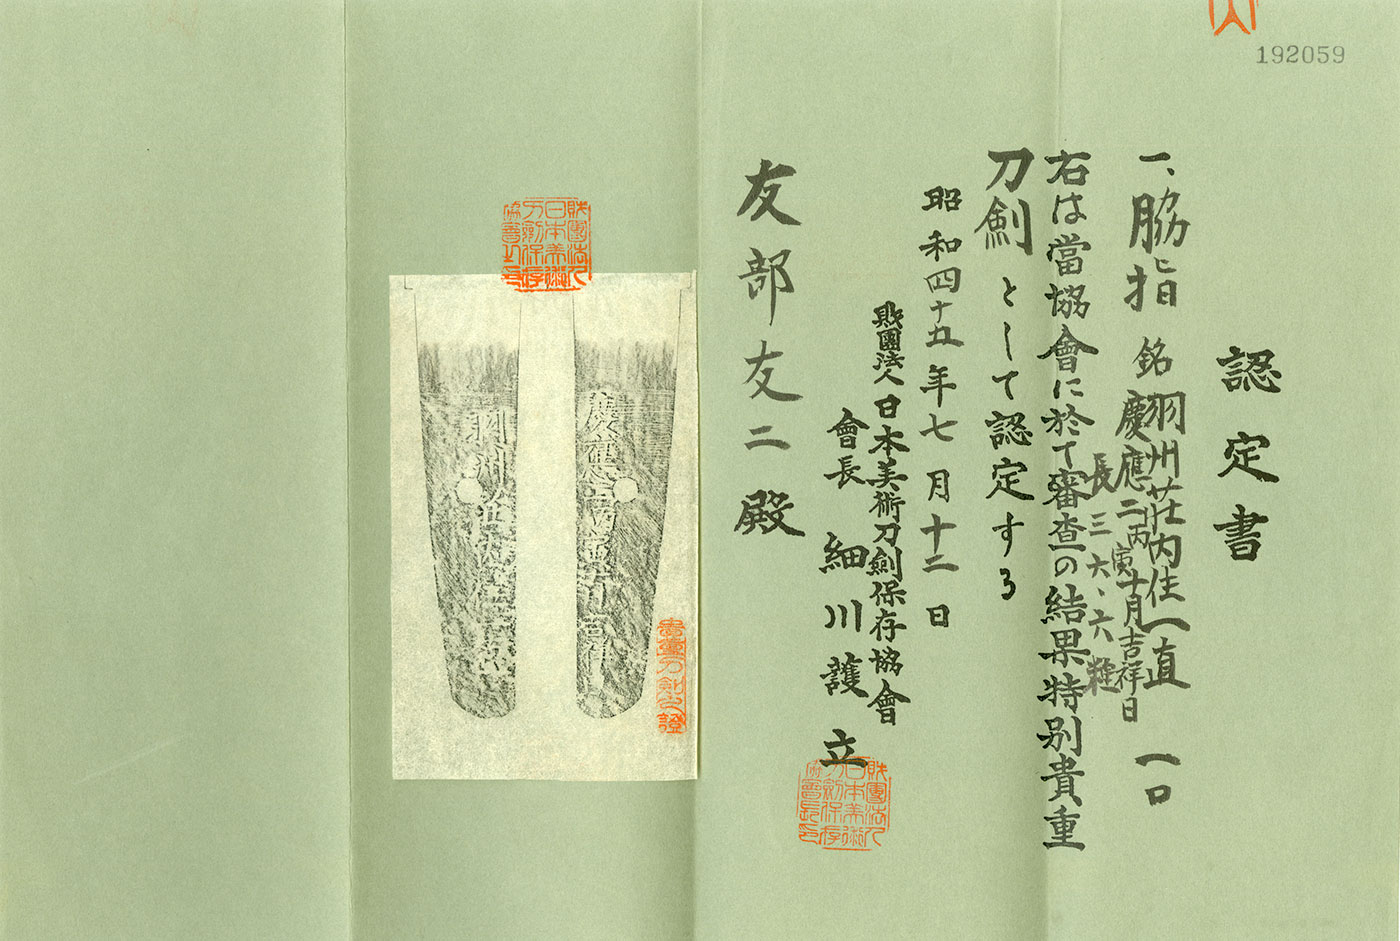 192059
認定書
一、脇指 銘 羽州荘内住一直 一口
慶應二丙寅十月吉祥日
長三六、六糎
右は當協會に於て審査の結果特別貴重
刀劍として認定する
昭和四十五年七月十二日
財團法人日本美術刀劍保存協會
會長 細川護立
友部友二殿
財團法人
日本美術
刀劍保存
協會長印
財團法人
日本美術
刀劍保存
協會之印
貴重刀劍之證